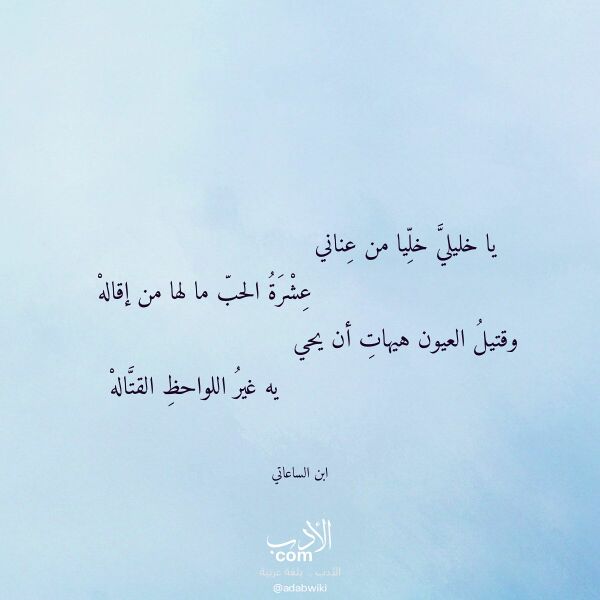 يا خليليَّ خلِّيا من عِناني
عِشْرَةُ الحبّ ما لها من إقالهْ
وقتيلُ العيون هيهاتِ أن يحي
يه غيرُ اللواحظِ القتَّالهْ
ابن الساعاتي
الأدب
com
الأدب .. بلغة عربية
@adabwiki